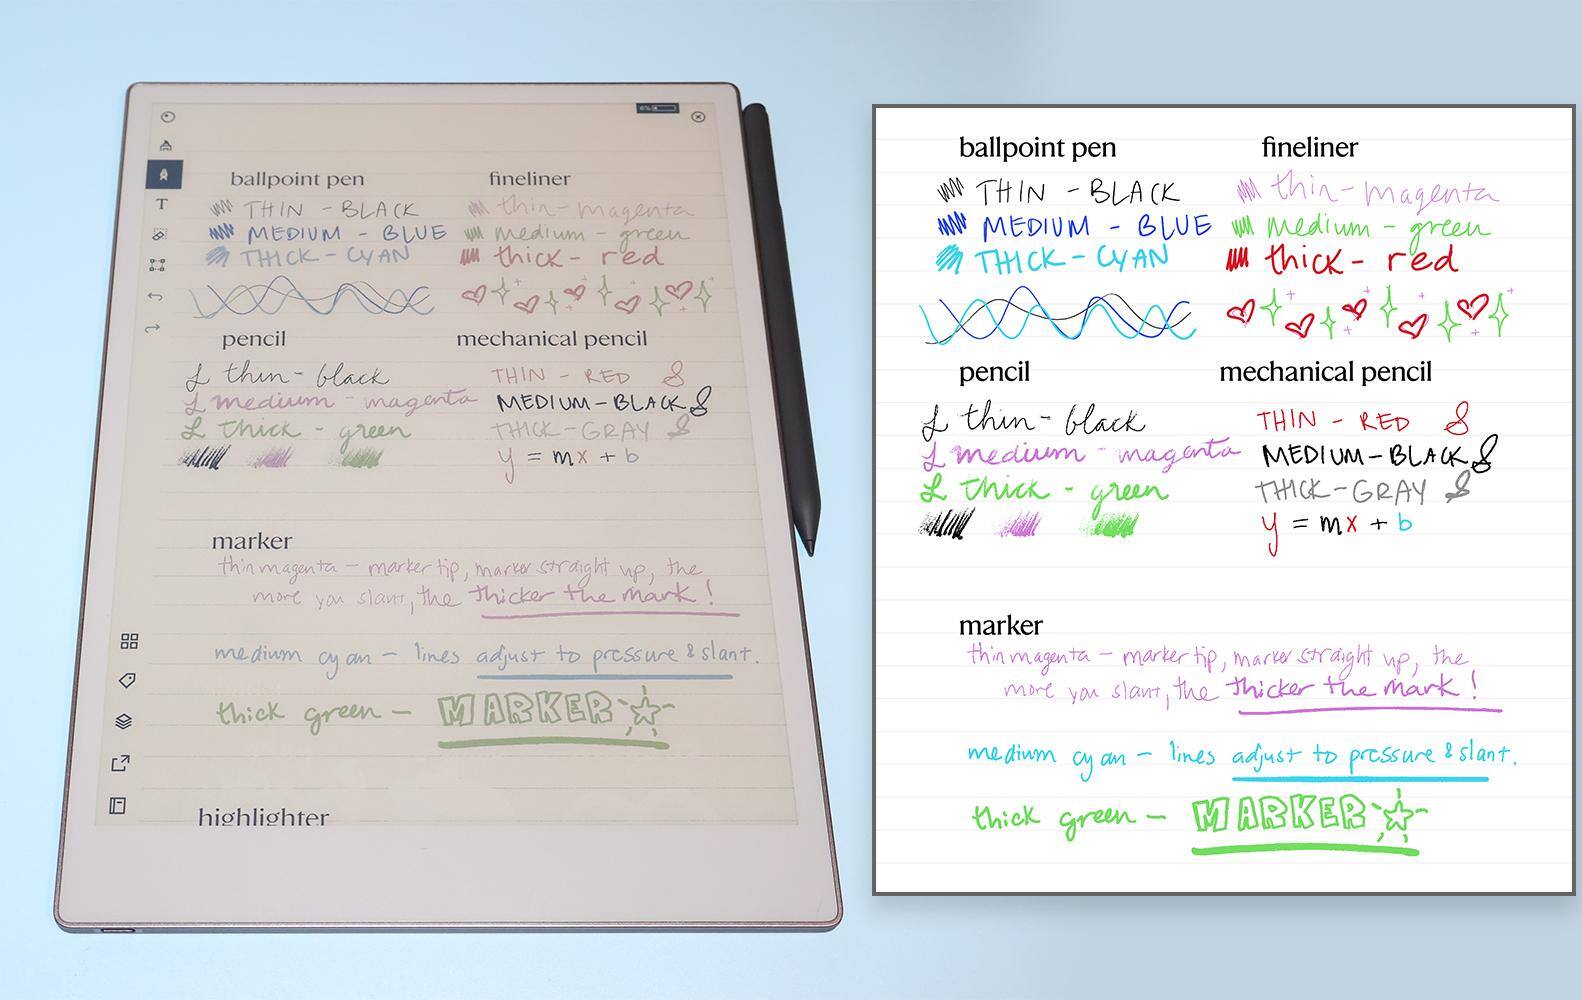 ballpoint pen
THIN - BLACK
MEDIUM - BLUE
THICK - CYAN
fineliner
thin - magenta
medium - green
thick - red
pencil
L thin - black
L medium - magenta
L thick - green
mechanical pencil
THIN - RED 8
MEDIUM - BLACK 8
THICK - GRAY 8
y = mx + b
marker
thin magenta - marker tip, marker straight up, the
more you slant, the thicker the mark!
medium cyan - lines adjust to pressure & slant.
thick green - MARKER
highlighter
ballpoint pen
THIN - BLACK
MEDIUM - BLUE
THICK - CYAN
fineliner
thin - magenta
medium - green
thick - red
pencil
L thin - black
L medium - magenta
L thick - green
mechanical pencil
THIN - RED 8
MEDIUM - BLACK 8
THICK - GRAY 8
y = mx + b
marker
thin magenta - marker tip, marker straight up, the
more you slant, the thicker the mark!
medium cyan - lines adjust to pressure & slant.
thick green - MARKER